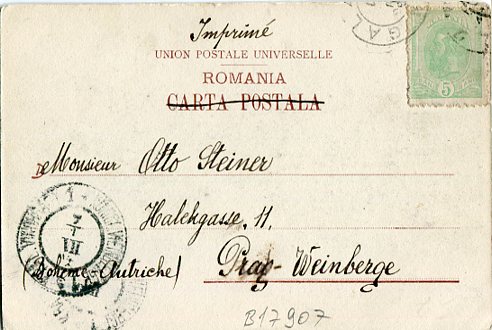 Imprimé
UNION POSTALE UNIVERSELLE
ROMANIA
CARTA POSTALA
5
Monsieur Otto Steiner
Halekgasse, 11.
(Bohème-Autriche) Prag-Weinberge
B17907